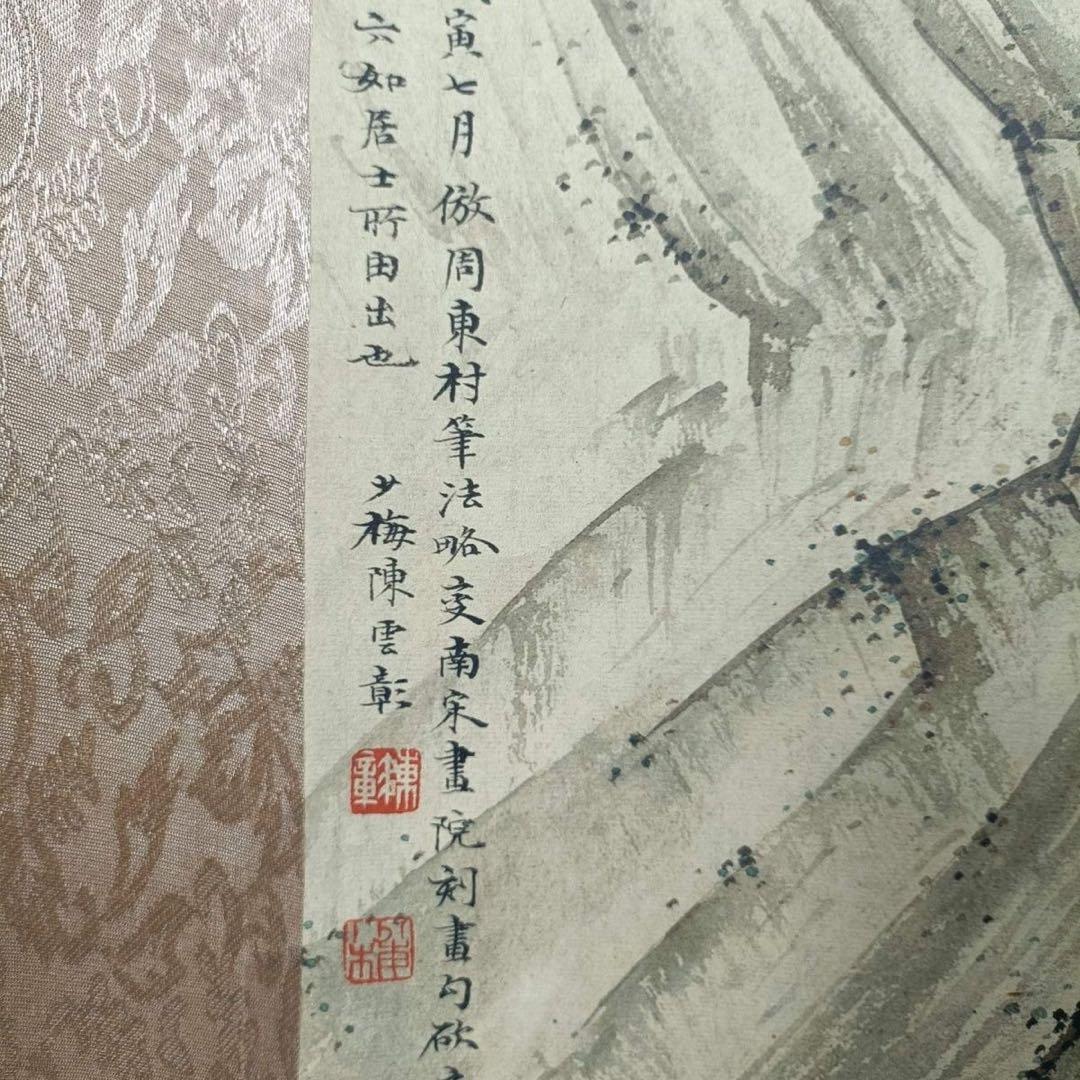 寅七月倣周東村筆法略變南宋畫院刻畫勾砍
六如居士所由出也
少梅陳雲彰
陳